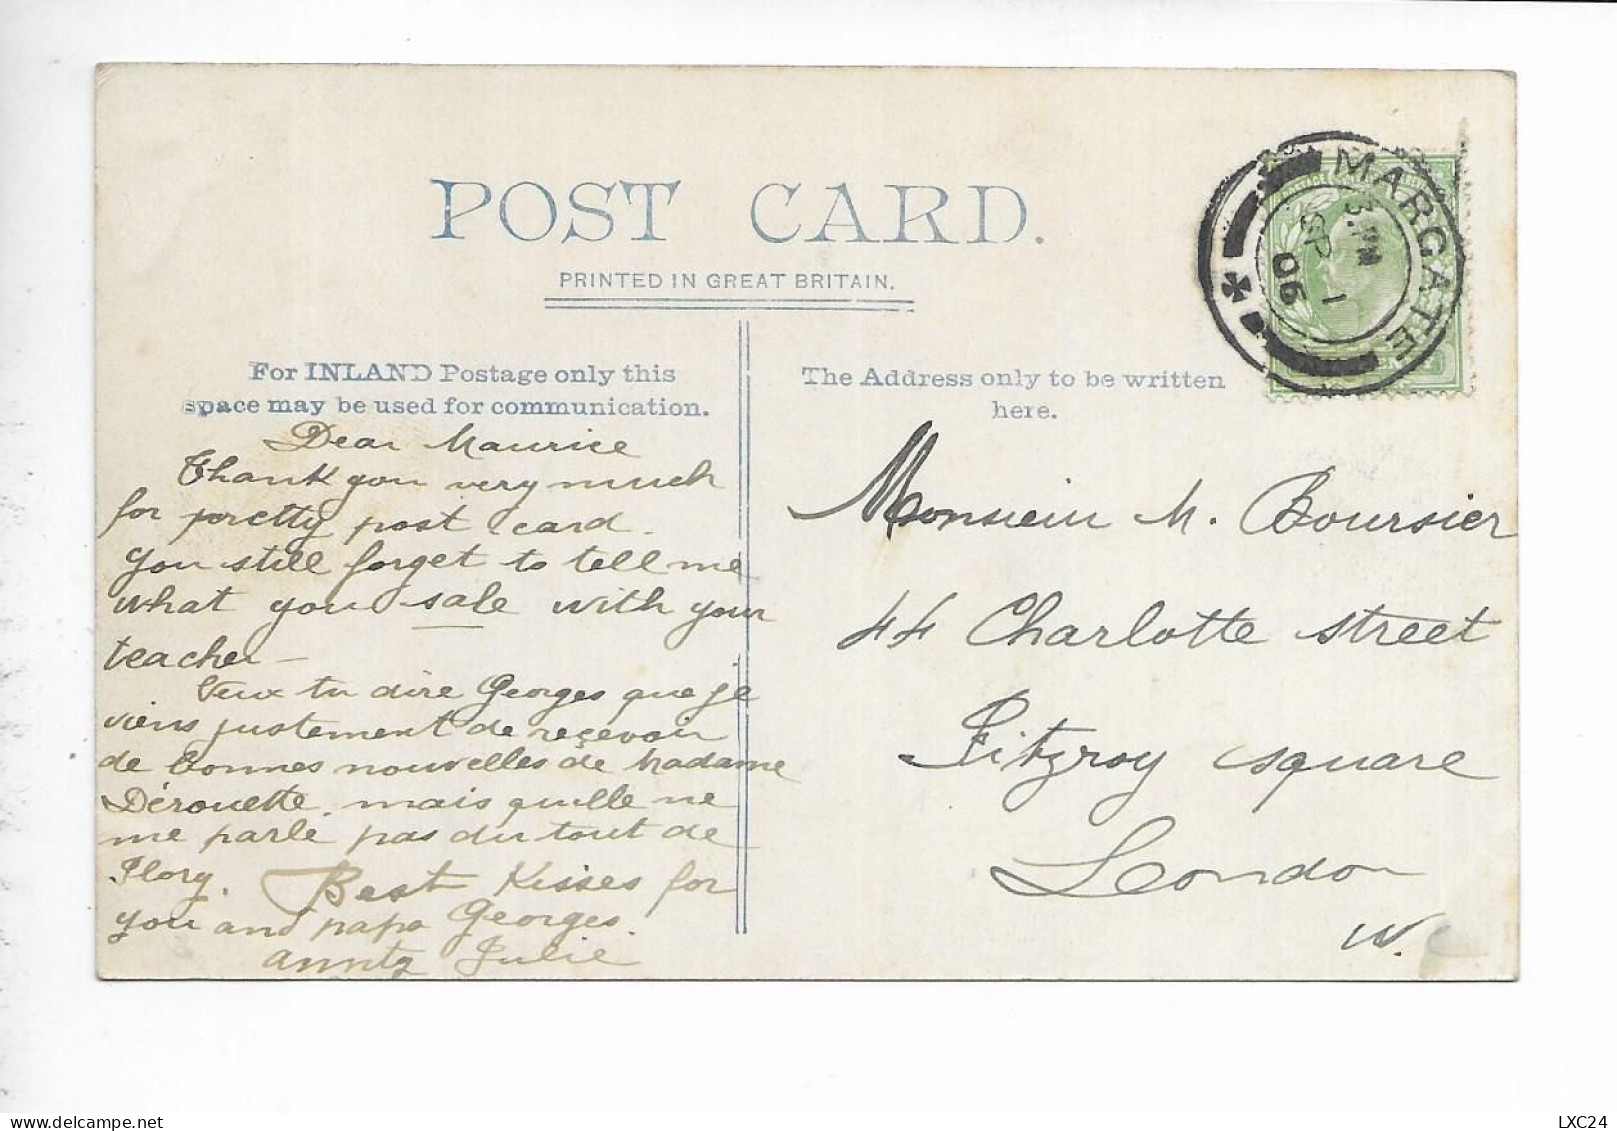 POST CARD.
PRINTED IN GREAT BRITAIN.
MARGATE
3.PM
SP 1
06
For INLAND Postage only this
space may be used for communication.
The Address only to be written
here.
Dear Maurice
Thank you very much
for pretty post card.
You still forget to tell me
what you sale with your
teacher –
Veux tu dire Georges que je
viens justement de reçevoir
de bonnes nouvelles de Madame
Dérouette, mais quille ne
me parle pas du tout de
Flory. Best Kisses for
you and papa Georges.
aunty Julie
Monsieur M. Boursier
44 Charlotte street
Fitzroy square
London
W.
LXC24